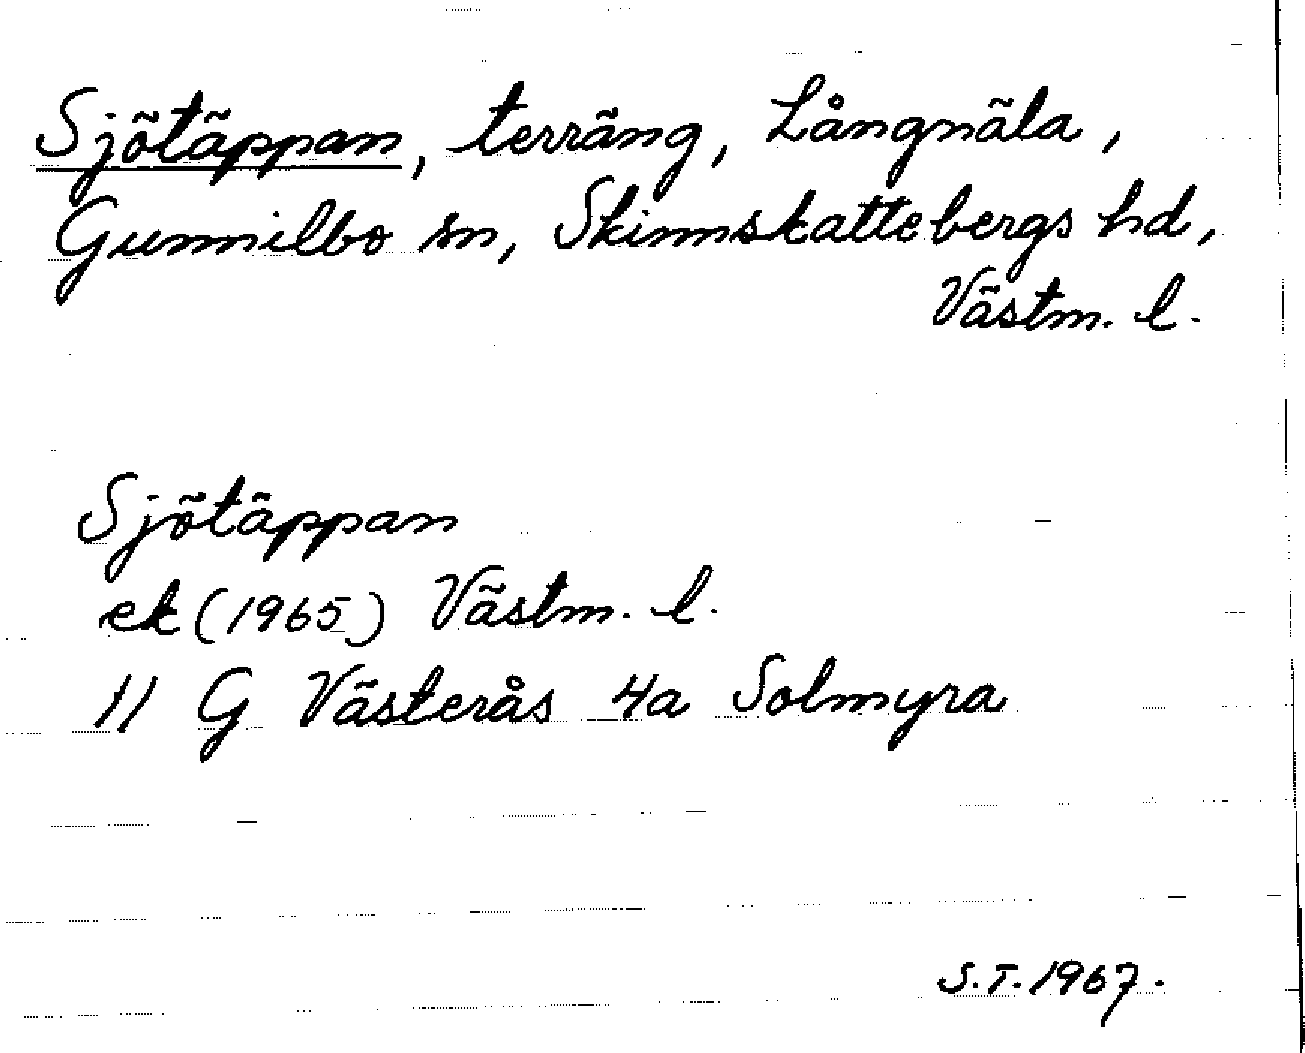 Sjötäppan, terräng, Långnäla,
Gunnilbo sn, Skinnskattebergs hd,
Västm. l.
Sjötäppan
ek (1965) Västm. l.
11 G Västerås 4a Solmyra
S.T. 1967.